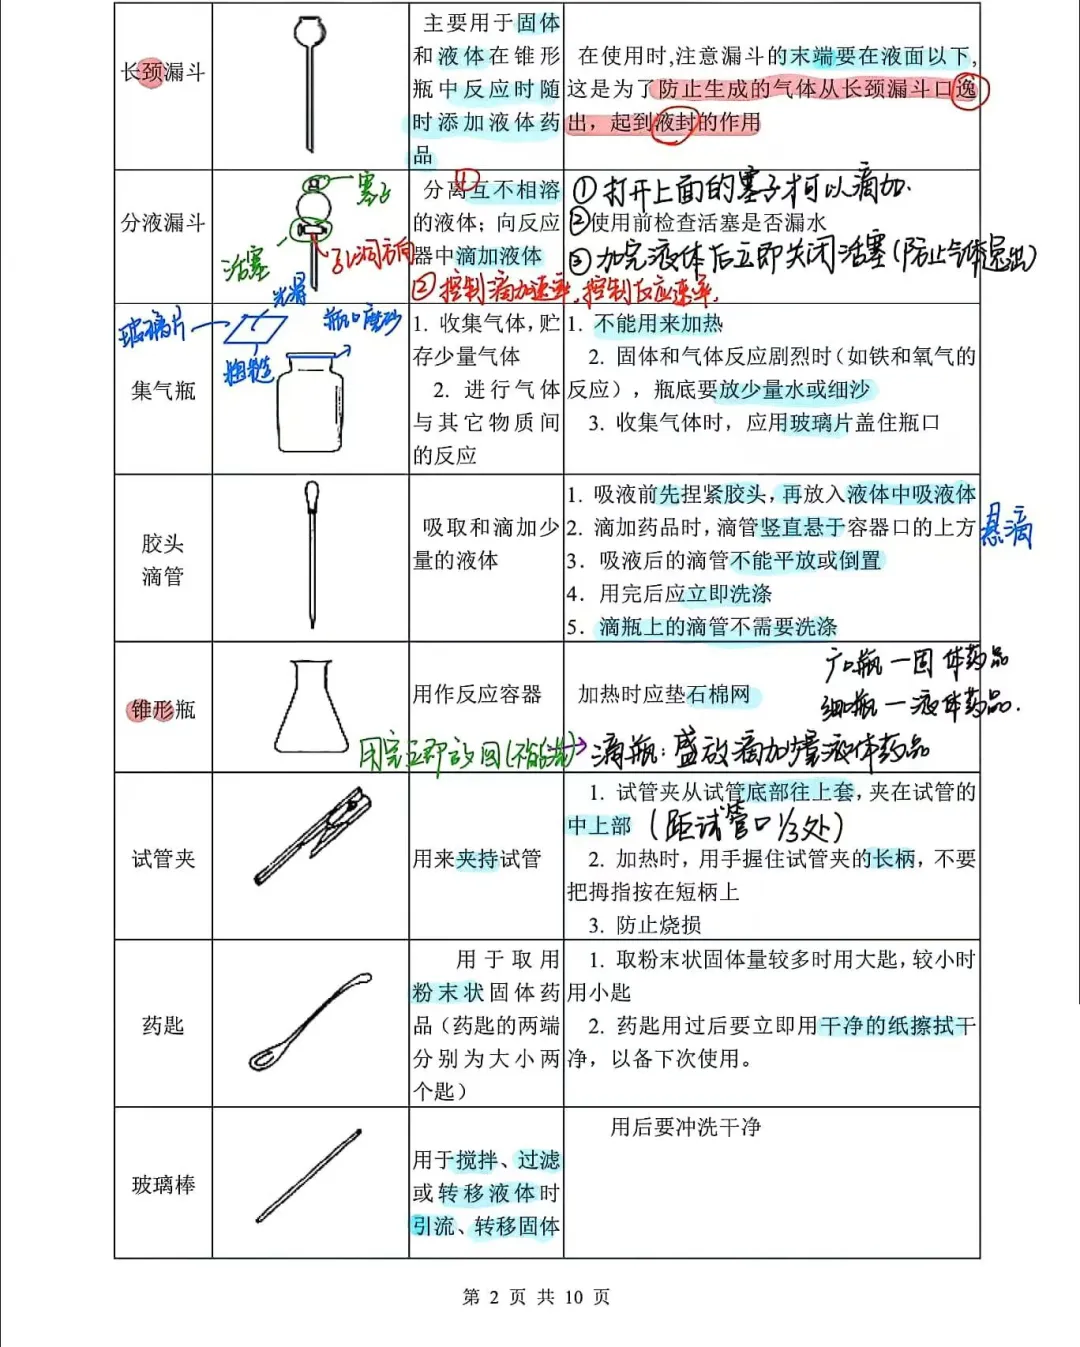 长颈漏斗
主要用于固体
和液体在锥形
瓶中反应时随
时添加液体药
品
在使用时,注意漏斗的末端要在液面以下,
这是为了防止生成的气体从长颈漏斗口逸
出，起到液封的作用
分液漏斗
塞子
活塞
孔洞方向
分离①互不相溶
的液体；向反应
器中滴加液体
②控制滴加速率,控制反应速率.
①打开上面的塞子才可以滴加.
②使用前检查活塞是否漏水
③加完液体后立即关闭活塞(防止气体逸出)
集气瓶
玻璃片
光滑
粗糙
瓶口磨砂
1. 收集气体，贮
存少量气体
2. 进行气体
与其它物质间
的反应
1. 不能用来加热
2. 固体和气体反应剧烈时（如铁和氧气的
反应），瓶底要放少量水或细沙
3. 收集气体时，应用玻璃片盖住瓶口
胶头
滴管
吸取和滴加少
量的液体
1. 吸液前先捏紧胶头，再放入液体中吸液体
2. 滴加药品时，滴管竖直悬于容器口的上方
悬滴
3. 吸液后的滴管不能平放或倒置
4. 用完后应立即洗涤
5. 滴瓶上的滴管不需要洗涤
锥形瓶
用作反应容器
加热时应垫石棉网
广口瓶—固体药品
细口瓶—液体药品.
用完立即放回
滴瓶：盛放滴加少量液体药品
试管夹
用来夹持试管
1. 试管夹从试管底部往上套，夹在试管的
中上部（距试管口1/3处）
2. 加热时，用手握住试管夹的长柄，不要
把拇指按在短柄上
3. 防止烧损
药匙
用于取用
粉末状固体药
品（药匙的两端
分别为大小两
个匙）
1. 取粉末状固体量较多时用大匙，较小时
用小匙
2. 药匙用过后要立即用干净的纸擦拭干
净，以备下次使用。
玻璃棒
用于搅拌、过滤
或转移液体时
引流、转移固体
用后要冲洗干净
第 2 页 共 10 页